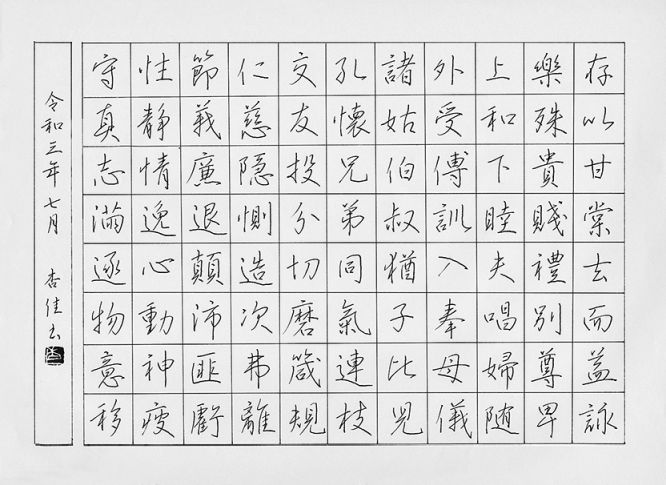 存以甘棠去而益詠
樂殊貴賤禮別尊卑
上和下睦夫唱婦随
外受傅訓入奉母儀
諸姑伯叔猶子比児
孔懐兄弟同氣連枝
交友投分切磨箴規
仁慈隠惻造次弗離
節義廉退顛沛匪虧
性静情逸心動神疲
守真志満逐物意移
令和三年七月 杏佳書